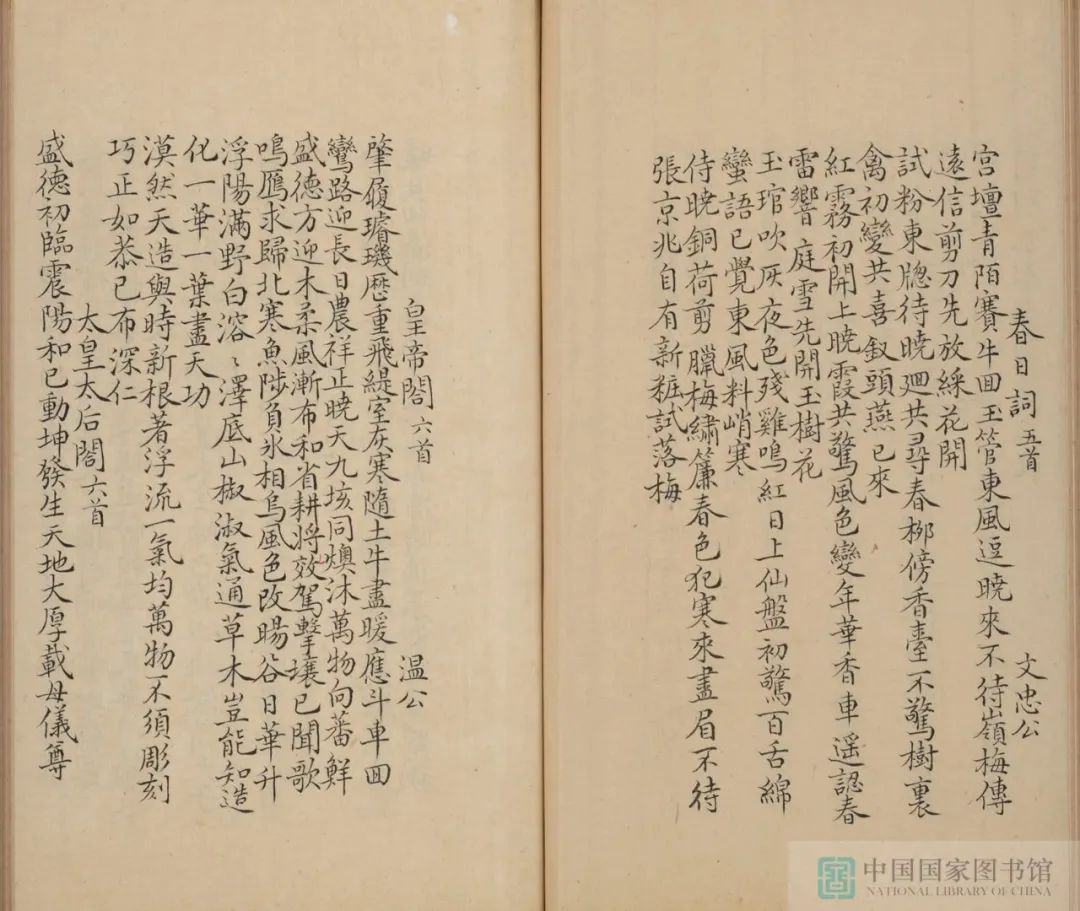 春日詞五首
文忠公
宫壇青陌賽牛囬玉管東風逗曉來不待嶺梅傳
遠信剪刀先放綵花開
試粉東牎待曉廻共尋春栁傍香臺不驚樹裏
禽初變共喜釵頭燕已來
紅霧初開上曉霞共驚風色變年華香車遥認春
雷響庭雪先開玉樹花
玉琯吹灰夜色殘雞鳴紅日上仙盤初驚百舌綿
蠻語已覺東風料峭寒
侍曉銅荷剪臘梅繡簾春色犯寒來畫眉不待
張京兆自有新糚試落梅
皇帝閤六首
温公
肇履璿璣歴重飛緹室灰寒隨土牛盡暖應斗車囬
鸞路迎長日農祥正曉天九垓同燠沐萬物向蕃鮮
盛德方迎木柔風漸布和省耕將效駕擊壤已聞歌
鳴鴈求歸北寒魚陟負氷相烏風色改暘谷日華升
浮陽滿野白溶〻澤底山椒淑氣通草木豈能知造
化一華一葉盡天功
漠然天造與時新根著浮流一氣均萬物不須彫刻
巧正如恭已布深仁
太皇太后閤六首
盛德初臨震陽和已動坤發生天地大厚載母儀尊
中国国家图书馆
NATIONAL LIBRARY OF CHINA